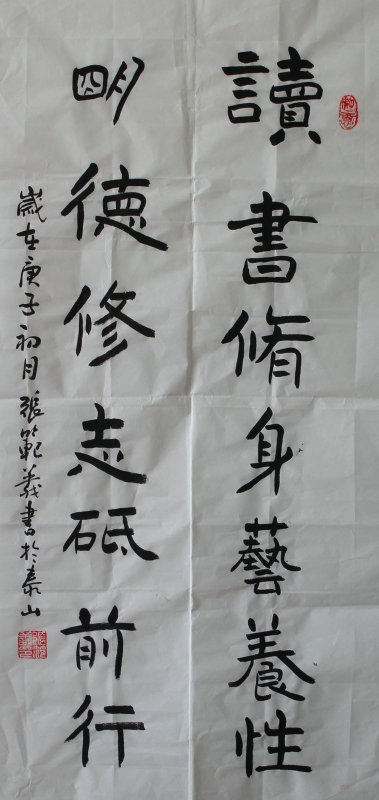 讀書脩身藝養性
明德修志砥前行
歲在庚子初月張範義書於泰山